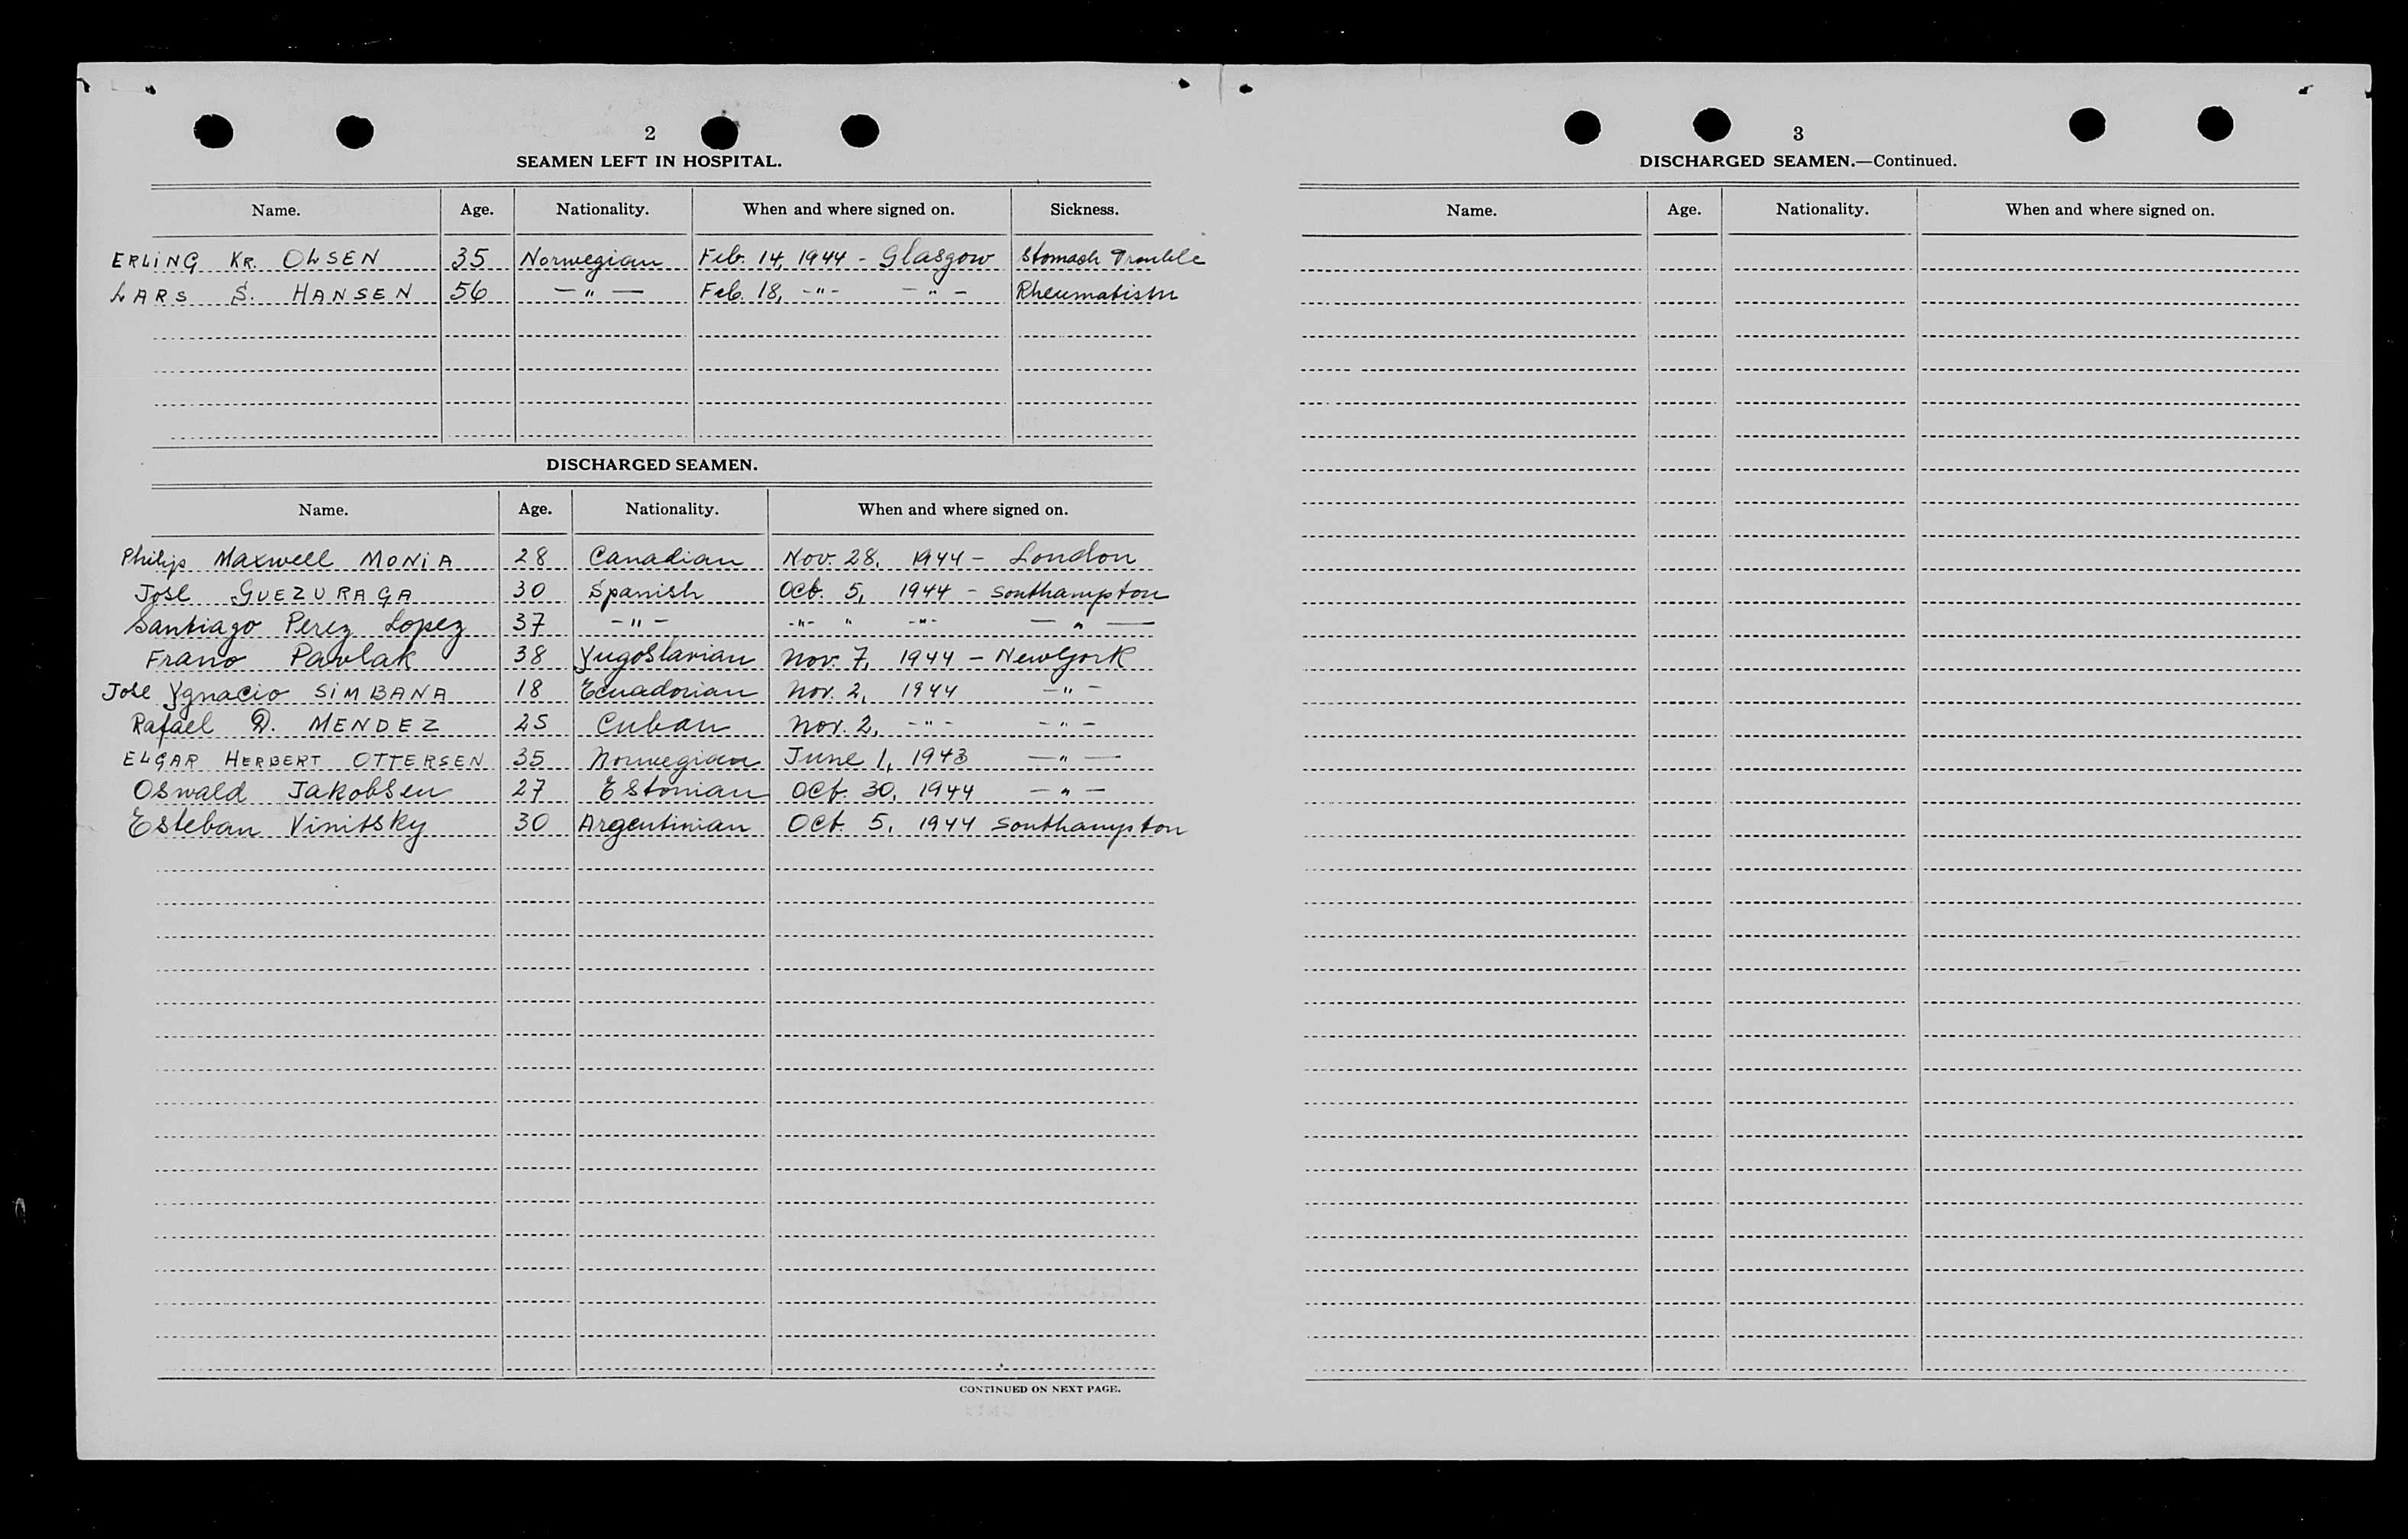 2
SEAMEN LEFT IN HOSPITAL.
Name. Age. Nationality. When and where signed on. Sickness.
ERLING KR. OLSEN 35 Norwegian Feb. 14, 1944 - Glasgow Stomach Trouble
LARS S. HANSEN 56 -"- Feb. 18, -"- -"- Rheumatism
DISCHARGED SEAMEN.
Name. Age. Nationality. When and where signed on.
Philip Maxwell MONIA 28 Canadian Nov. 28, 1944 - London
Jose GUEZURAGA 30 Spanish Oct. 5, 1944 - Southampton
Santiago Perez Lopez 37 -"- -"- " -"- -"-
Frano Pavlak 38 Yugoslavian Nov. 7, 1944 - New York
Jose Ygnacio SIMBANA 18 Ecuadorian Nov. 2, 1944 -"-
Rafael D. MENDEZ 25 Cuban Nov. 2, -"- -"-
ELGAR HERBERT OTTERSEN 35 Norwegian June 1, 1943 -"-
Oswald Jakobsen 27 Estonian Oct. 30, 1944 -"-
Esteban Vinitsky 30 Argentinian Oct. 5, 1944 Southampton
CONTINUED ON NEXT PAGE.
3
DISCHARGED SEAMEN.—Continued.
Name. Age. Nationality. When and where signed on.